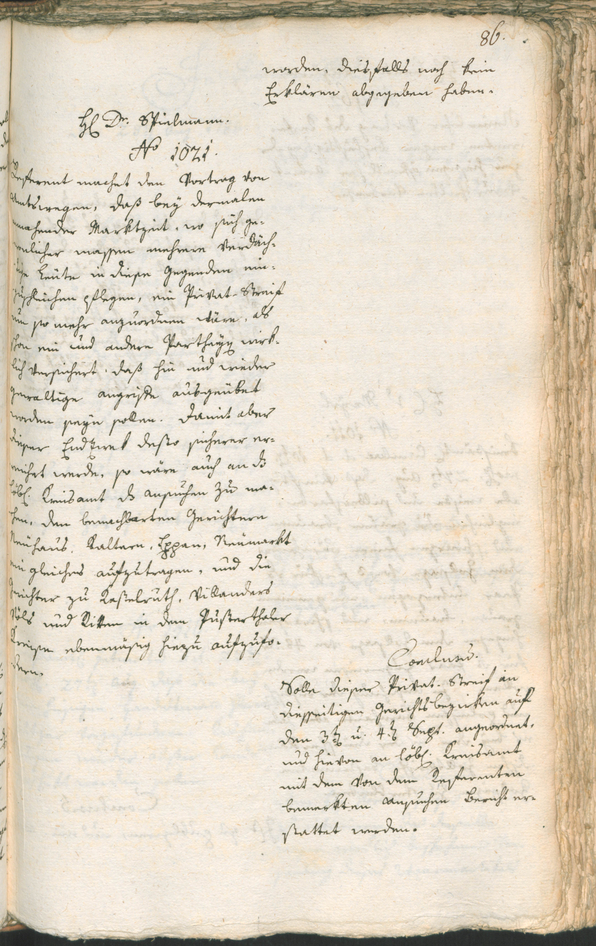 86.
worden, diesfalls noch kein
Erklären abgegeben haben.
H Dr. Spielmann.
No 1021.
Referent machet den Vortrag von
Amtswegen, daß bey dermalen
nachender Marktzeit, wo sich ge-
wöhnlicher massen, mehrere Verdäch-
tige Leute in diese Gegenden ein-
zuschleichen pflegen, ein Privat-Streif
um so mehr anzuordnen wäre, als
schon ein und andere Partheyen wirk-
lich versichert, daß hin und wieder
gewaltige angriffe ausgeübet
worden seyn sollen. Damit aber
dieser Endzwek desto sicherer er-
reichet werde, so wäre auch an das
löbl. Kreisamt das ansuchen zu ma-
chen, den benachbarten Gerichtern
Neuhaus, Kaltern, Eppan, Neumarkt
ein gleiches aufzutragen, und die
Gerichter zu Kastelruth, Villanders
Völs und Ritten in dem Pusterthaler
Kreise ebenmäsig hiezu aufzufo-
dern.
Conclusum.
Solle dieser Privat-Streif in
diesseitigen Gerichtsbezirken auf
den 3t u. 4t Sept. angeordnet,
und hievon an löbl. Kreisamt
mit dem von dem Referenten
bemerkten ansuchen Bericht er-
stattet werden.